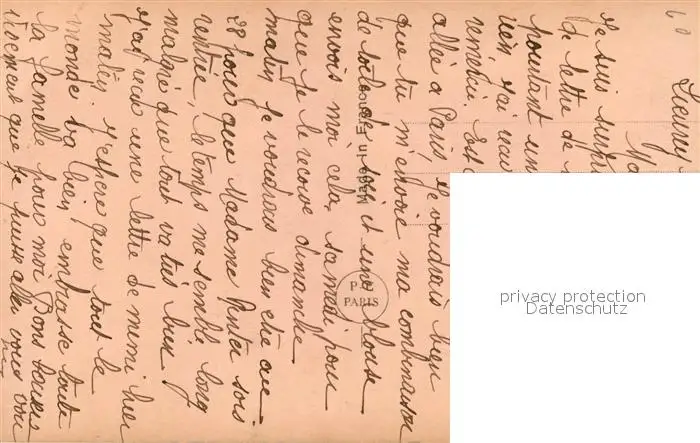 Gagny
Ma
Je suis surpr
de lettre de
pourtant un
ien j'ai
remercie. Est
allée a Paris je voudrais bien
que tu m'envoie ma combinaison
de toile de soie et une blouse
envois moi cela samedi pour
que je le recoive dimanche
matin je voudrais bien etre au
28 pour que Madame Genter sois
rentrée, le temps me semble long
malgré que tout va tres bien
j'ai recu une lettre de mimi hier
matin. J'espere que tout le
monde va bien embrasse toute
la famille pour moi Bons baisers
que je puisse aller vous voir
MADE IN FRANCE
P.C
PARIS
privacy protection
Datenschutz